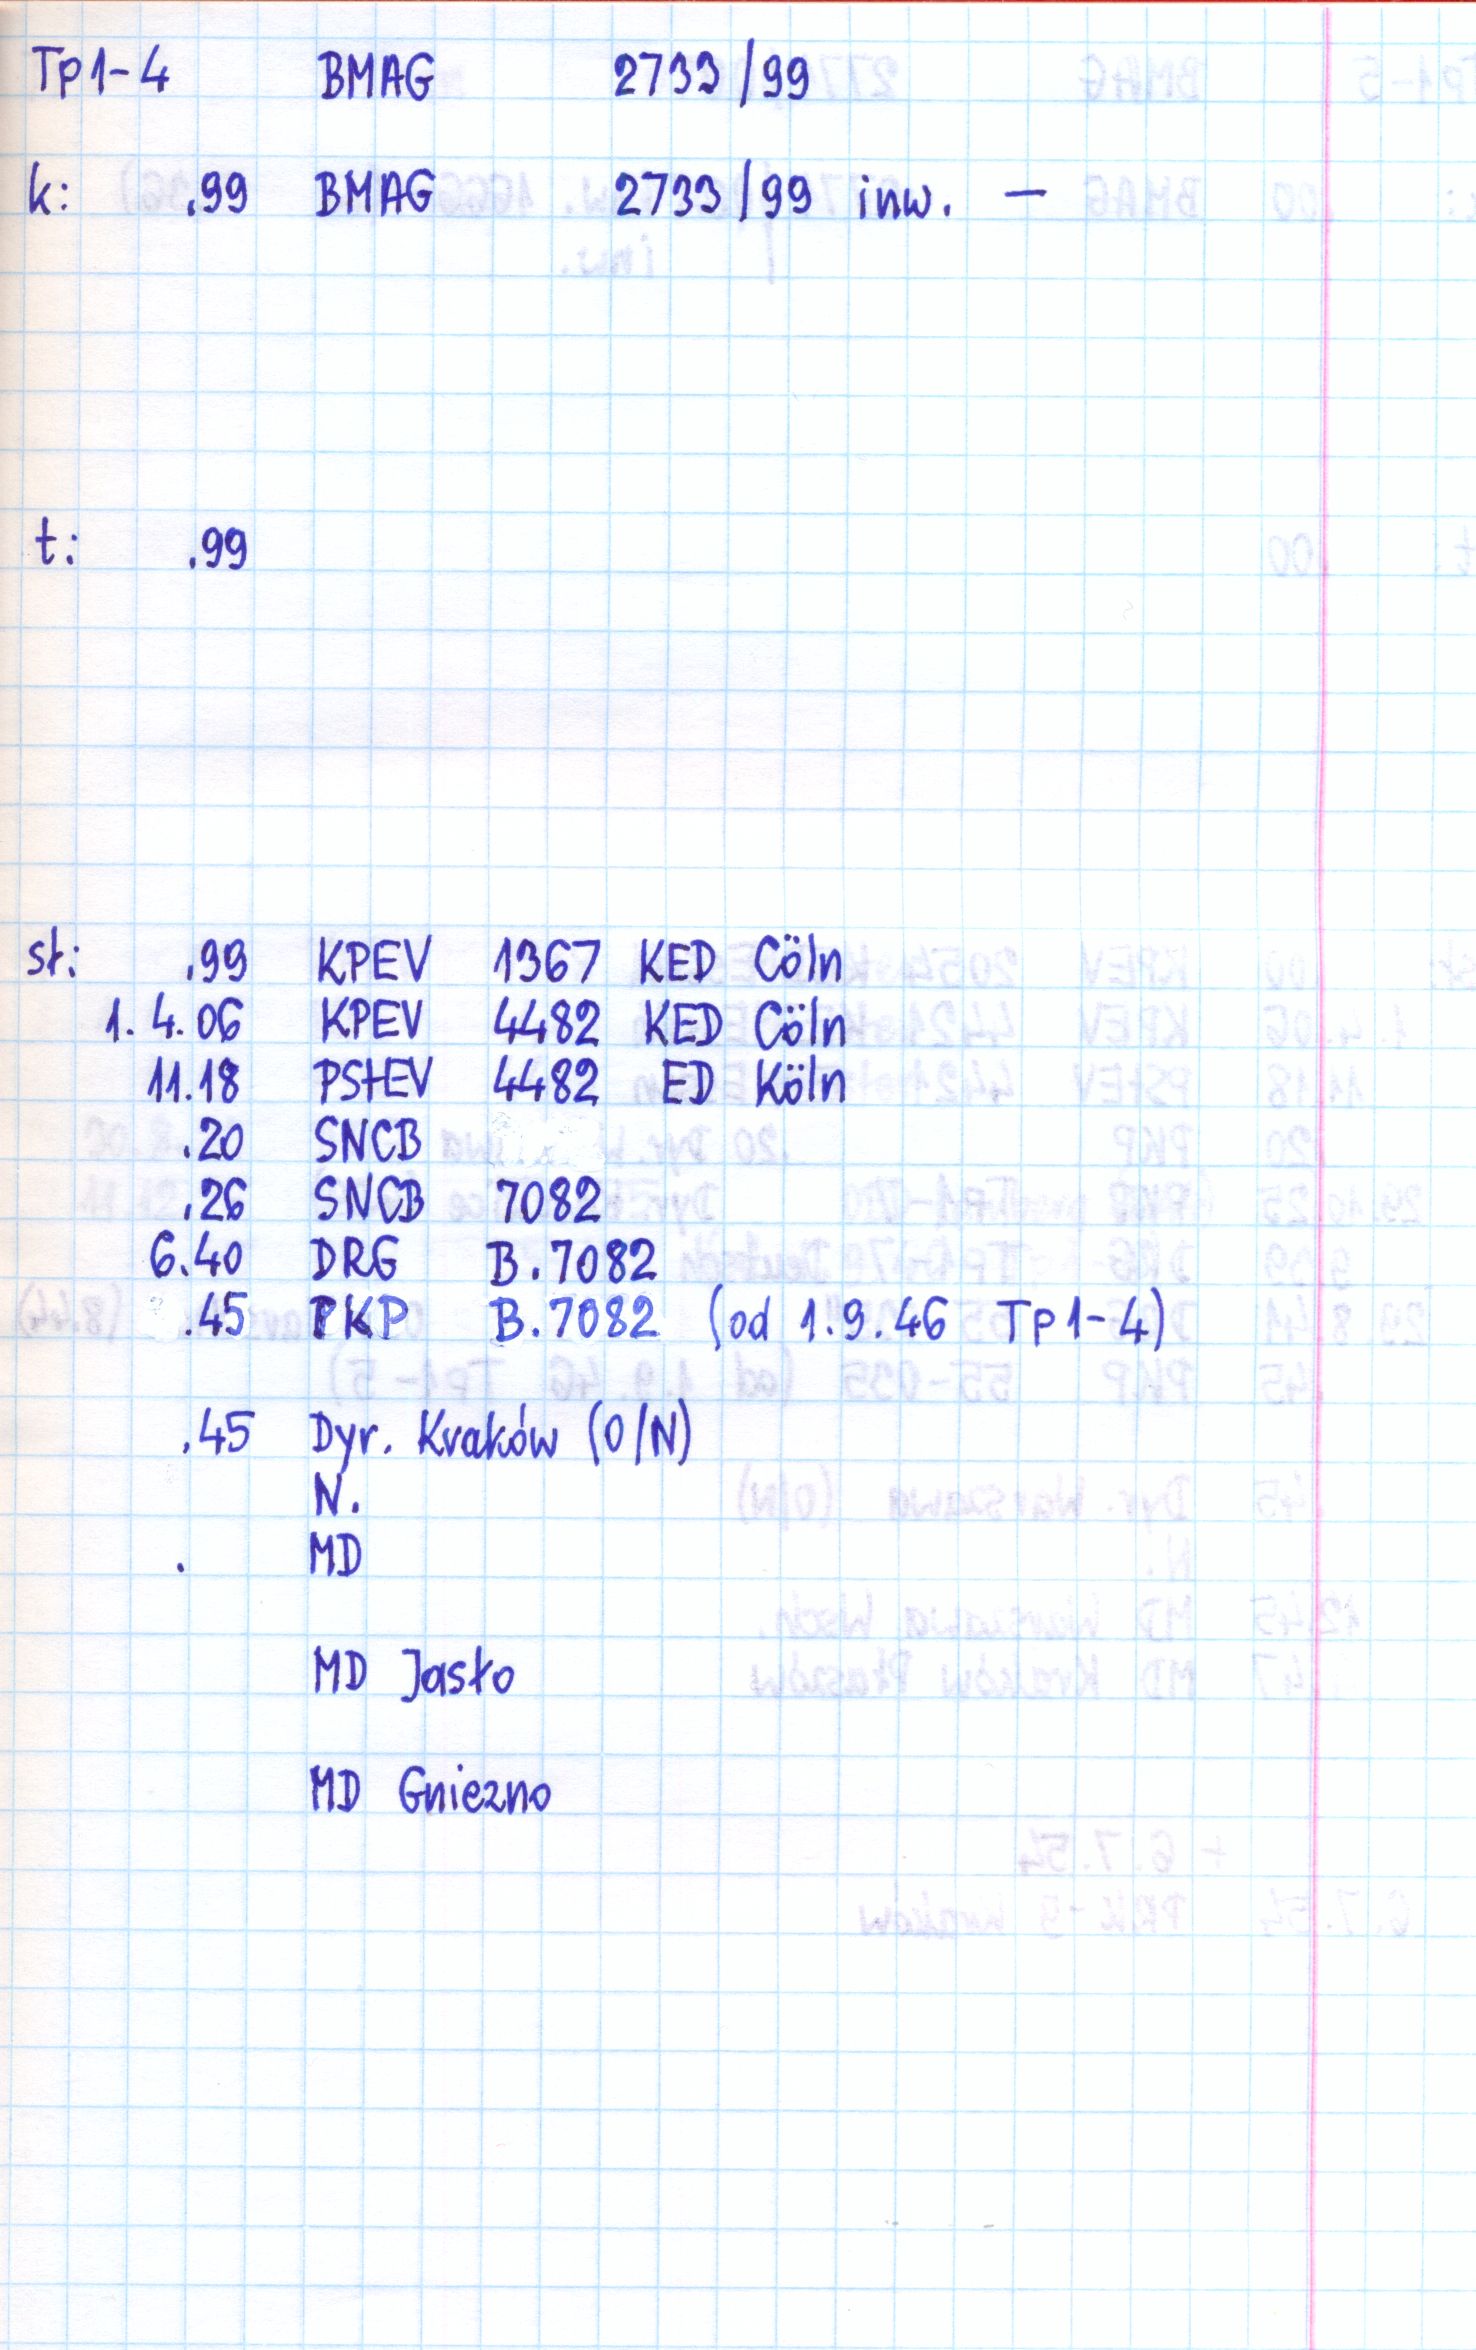 Tp1-4 BMAG 2733/99
k: .99 BMAG 2733/99 inw. —
t: .99
st: .99 KPEV 1367 KED Cöln
1.4.06 KPEV 4482 KED Cöln
11.18 PStEV 4482 ED Köln
.20 SNCB
.26 SNCB 7082
6.40 DRG B.7082
.45 PKP B.7082 (od 1.9.46 Tp1-4)
.45 Dyr. Kraków (O/N)
N.
. MD
MD Jasło
MD Gniezno